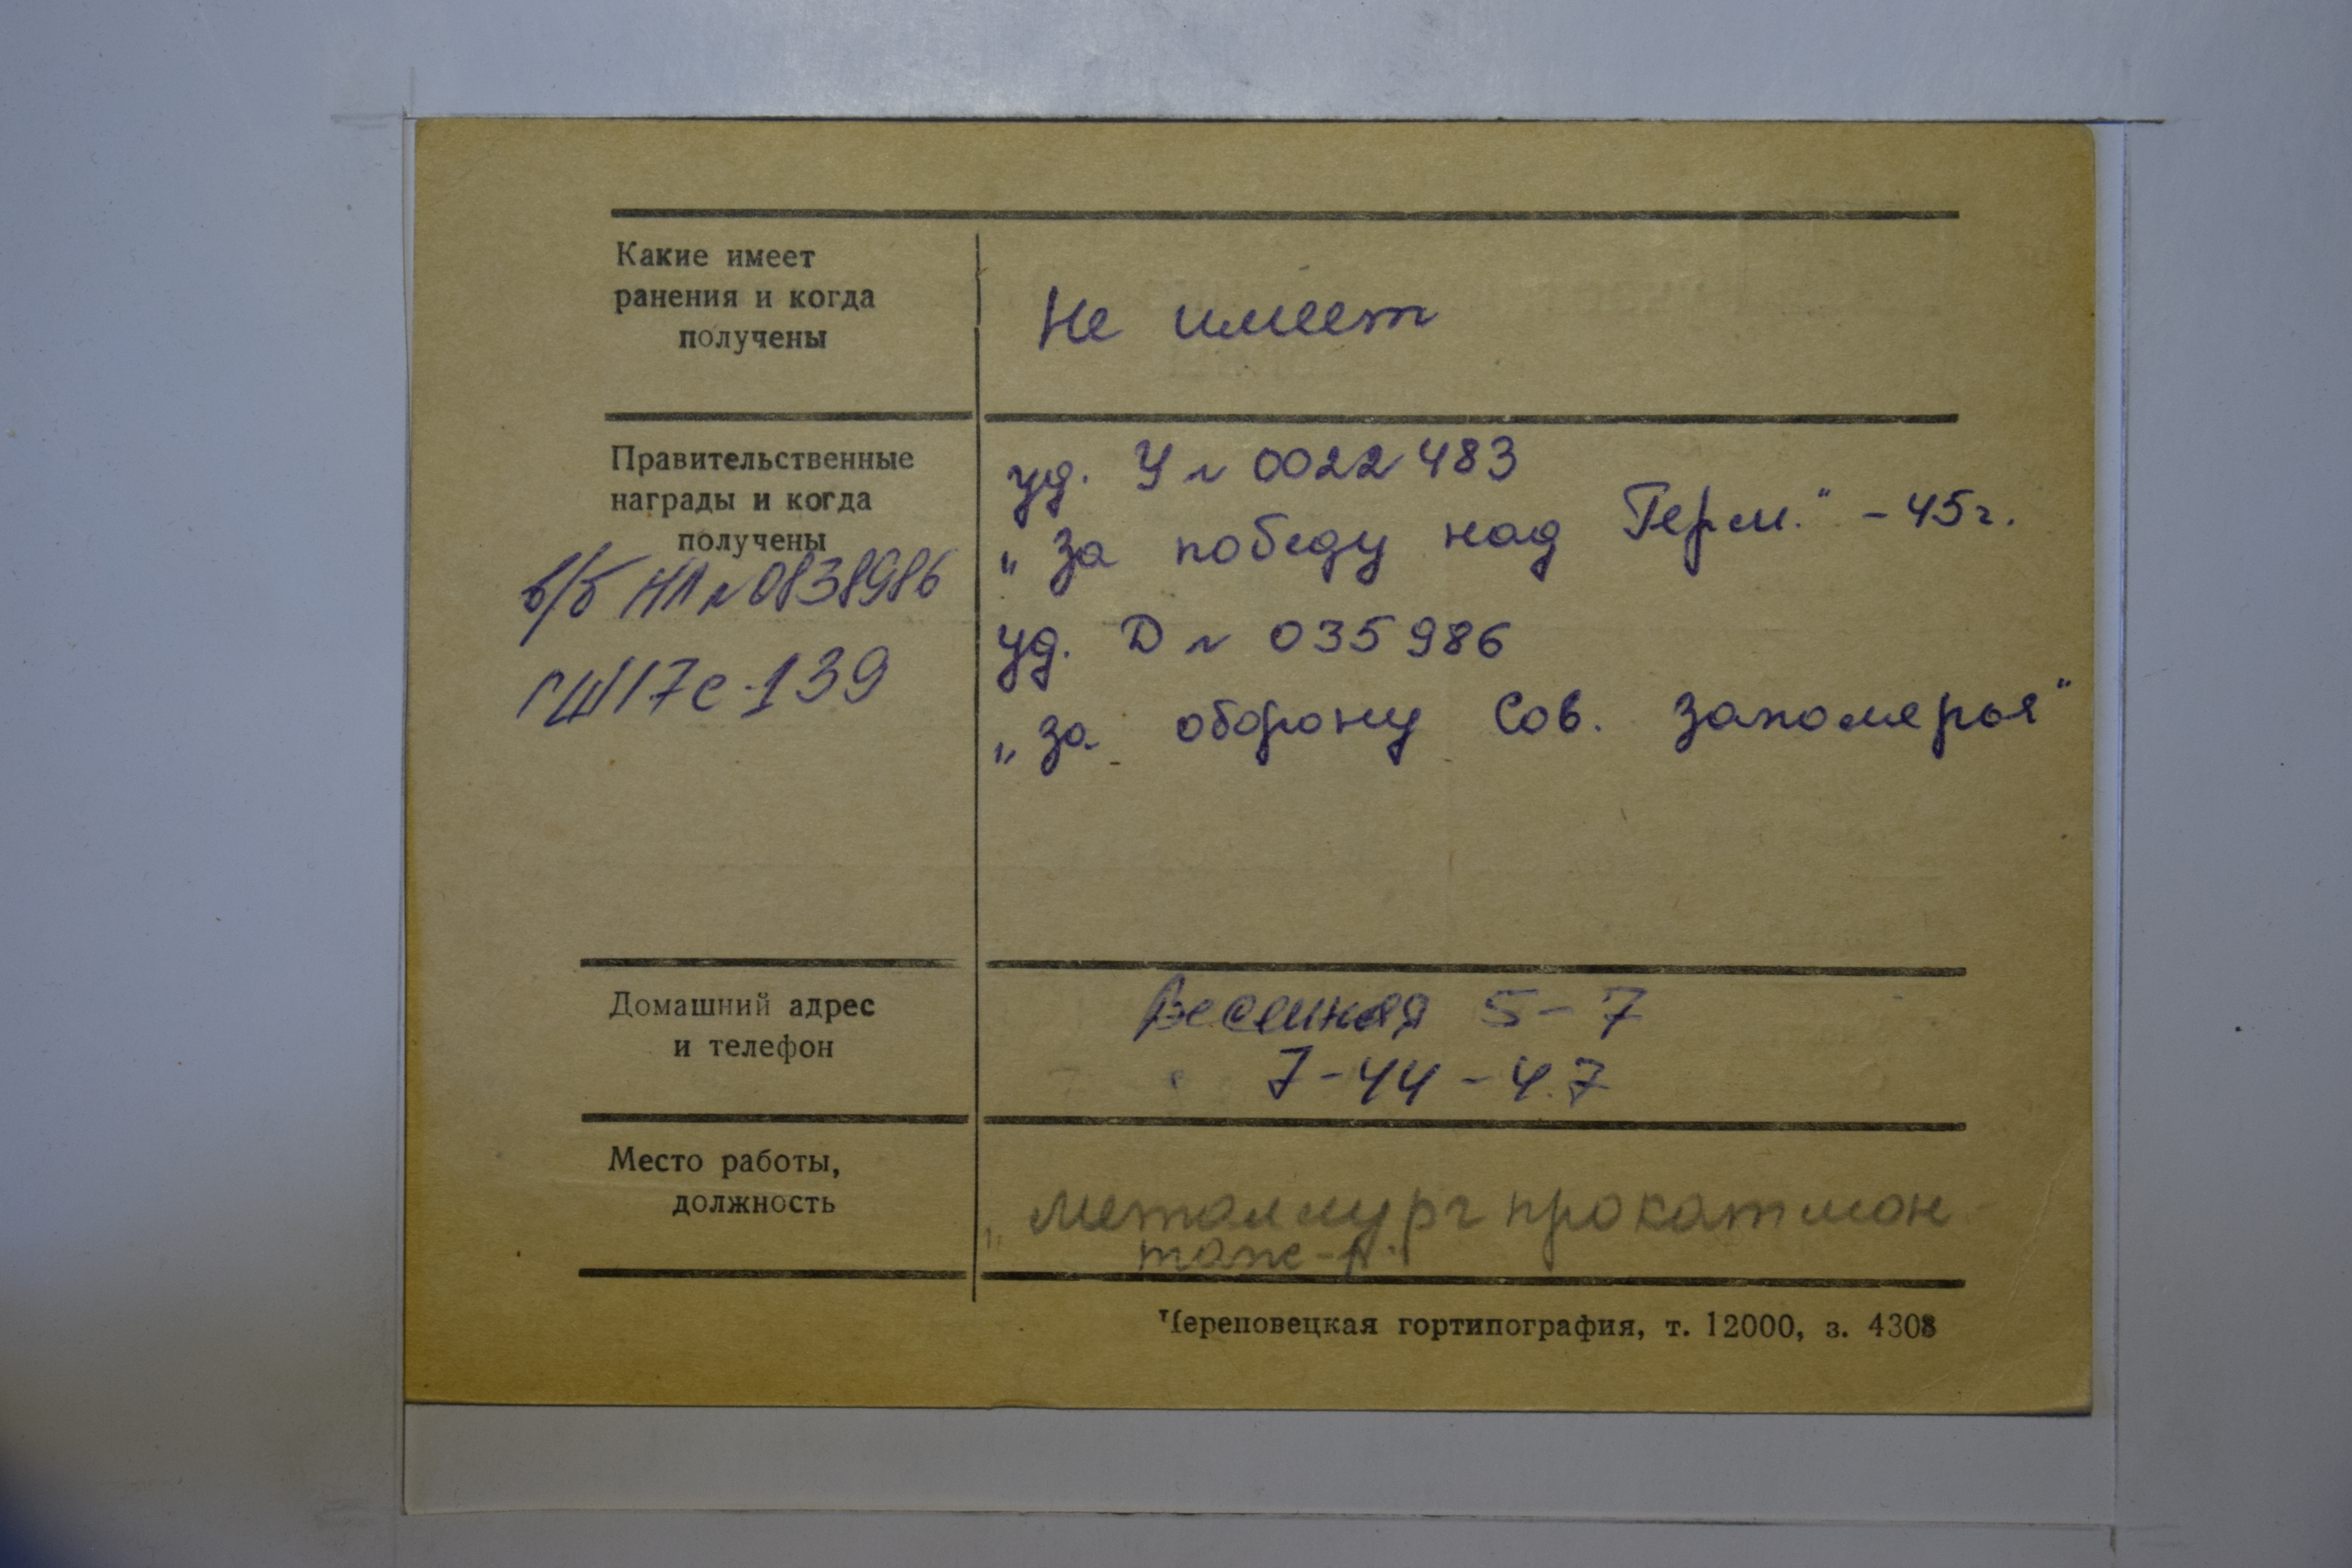 Какие имеет
ранения и когда
получены
Не имеет
Правительственные
награды и когда
получены
в/б НЛ № 0838986
ГШ 17с-139
уд. У № 0022483
„За победу над Герм." - 45г.
уд. D № 035986
„за оборону Сов. заполярья"
Домашний адрес
и телефон
Весенняя 5-7
7-44-47
Место работы,
должность
„металлургпрокатмон
таж-
Череповецкая гортипография, т. 12000, з. 4308